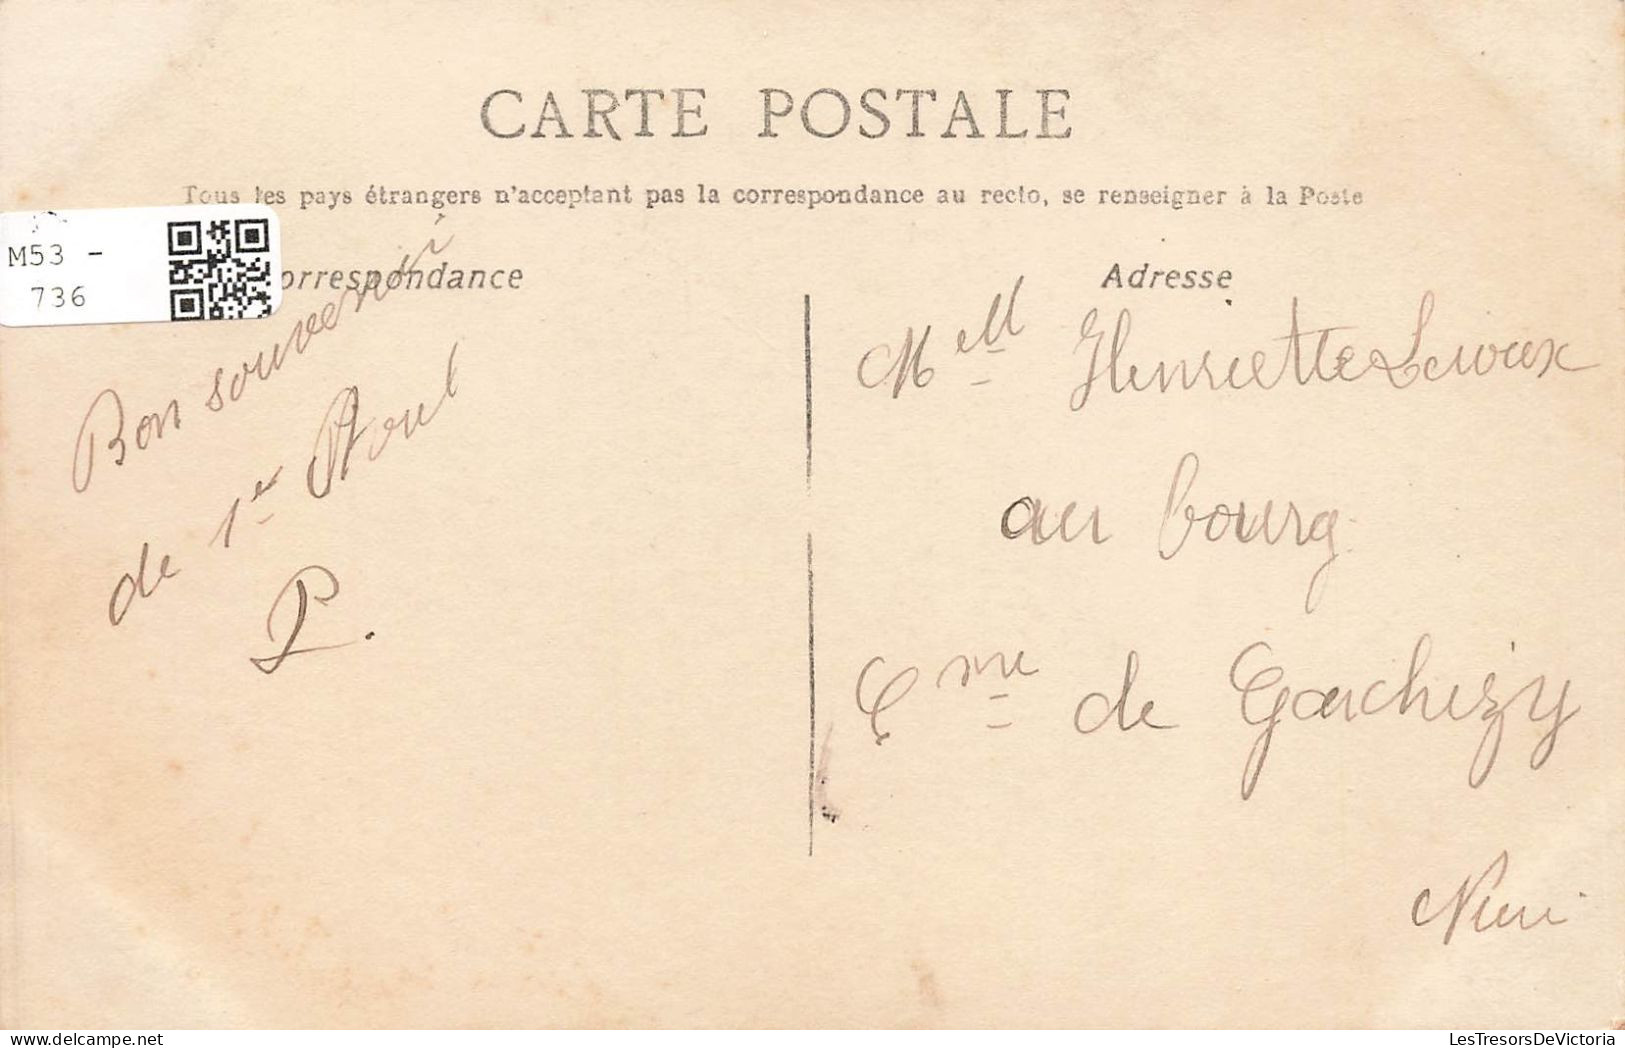 CARTE POSTALE
Tous les pays étrangers n'acceptant pas la correspondance au recto, se renseigner à la Poste
M53 -
736
orrespondance
Bon souvenir
de 1er Aout
P.
Adresse
Mell Henriette Leroux
au bourg
Cme de Garchizy
LesTresorsDeVictoria